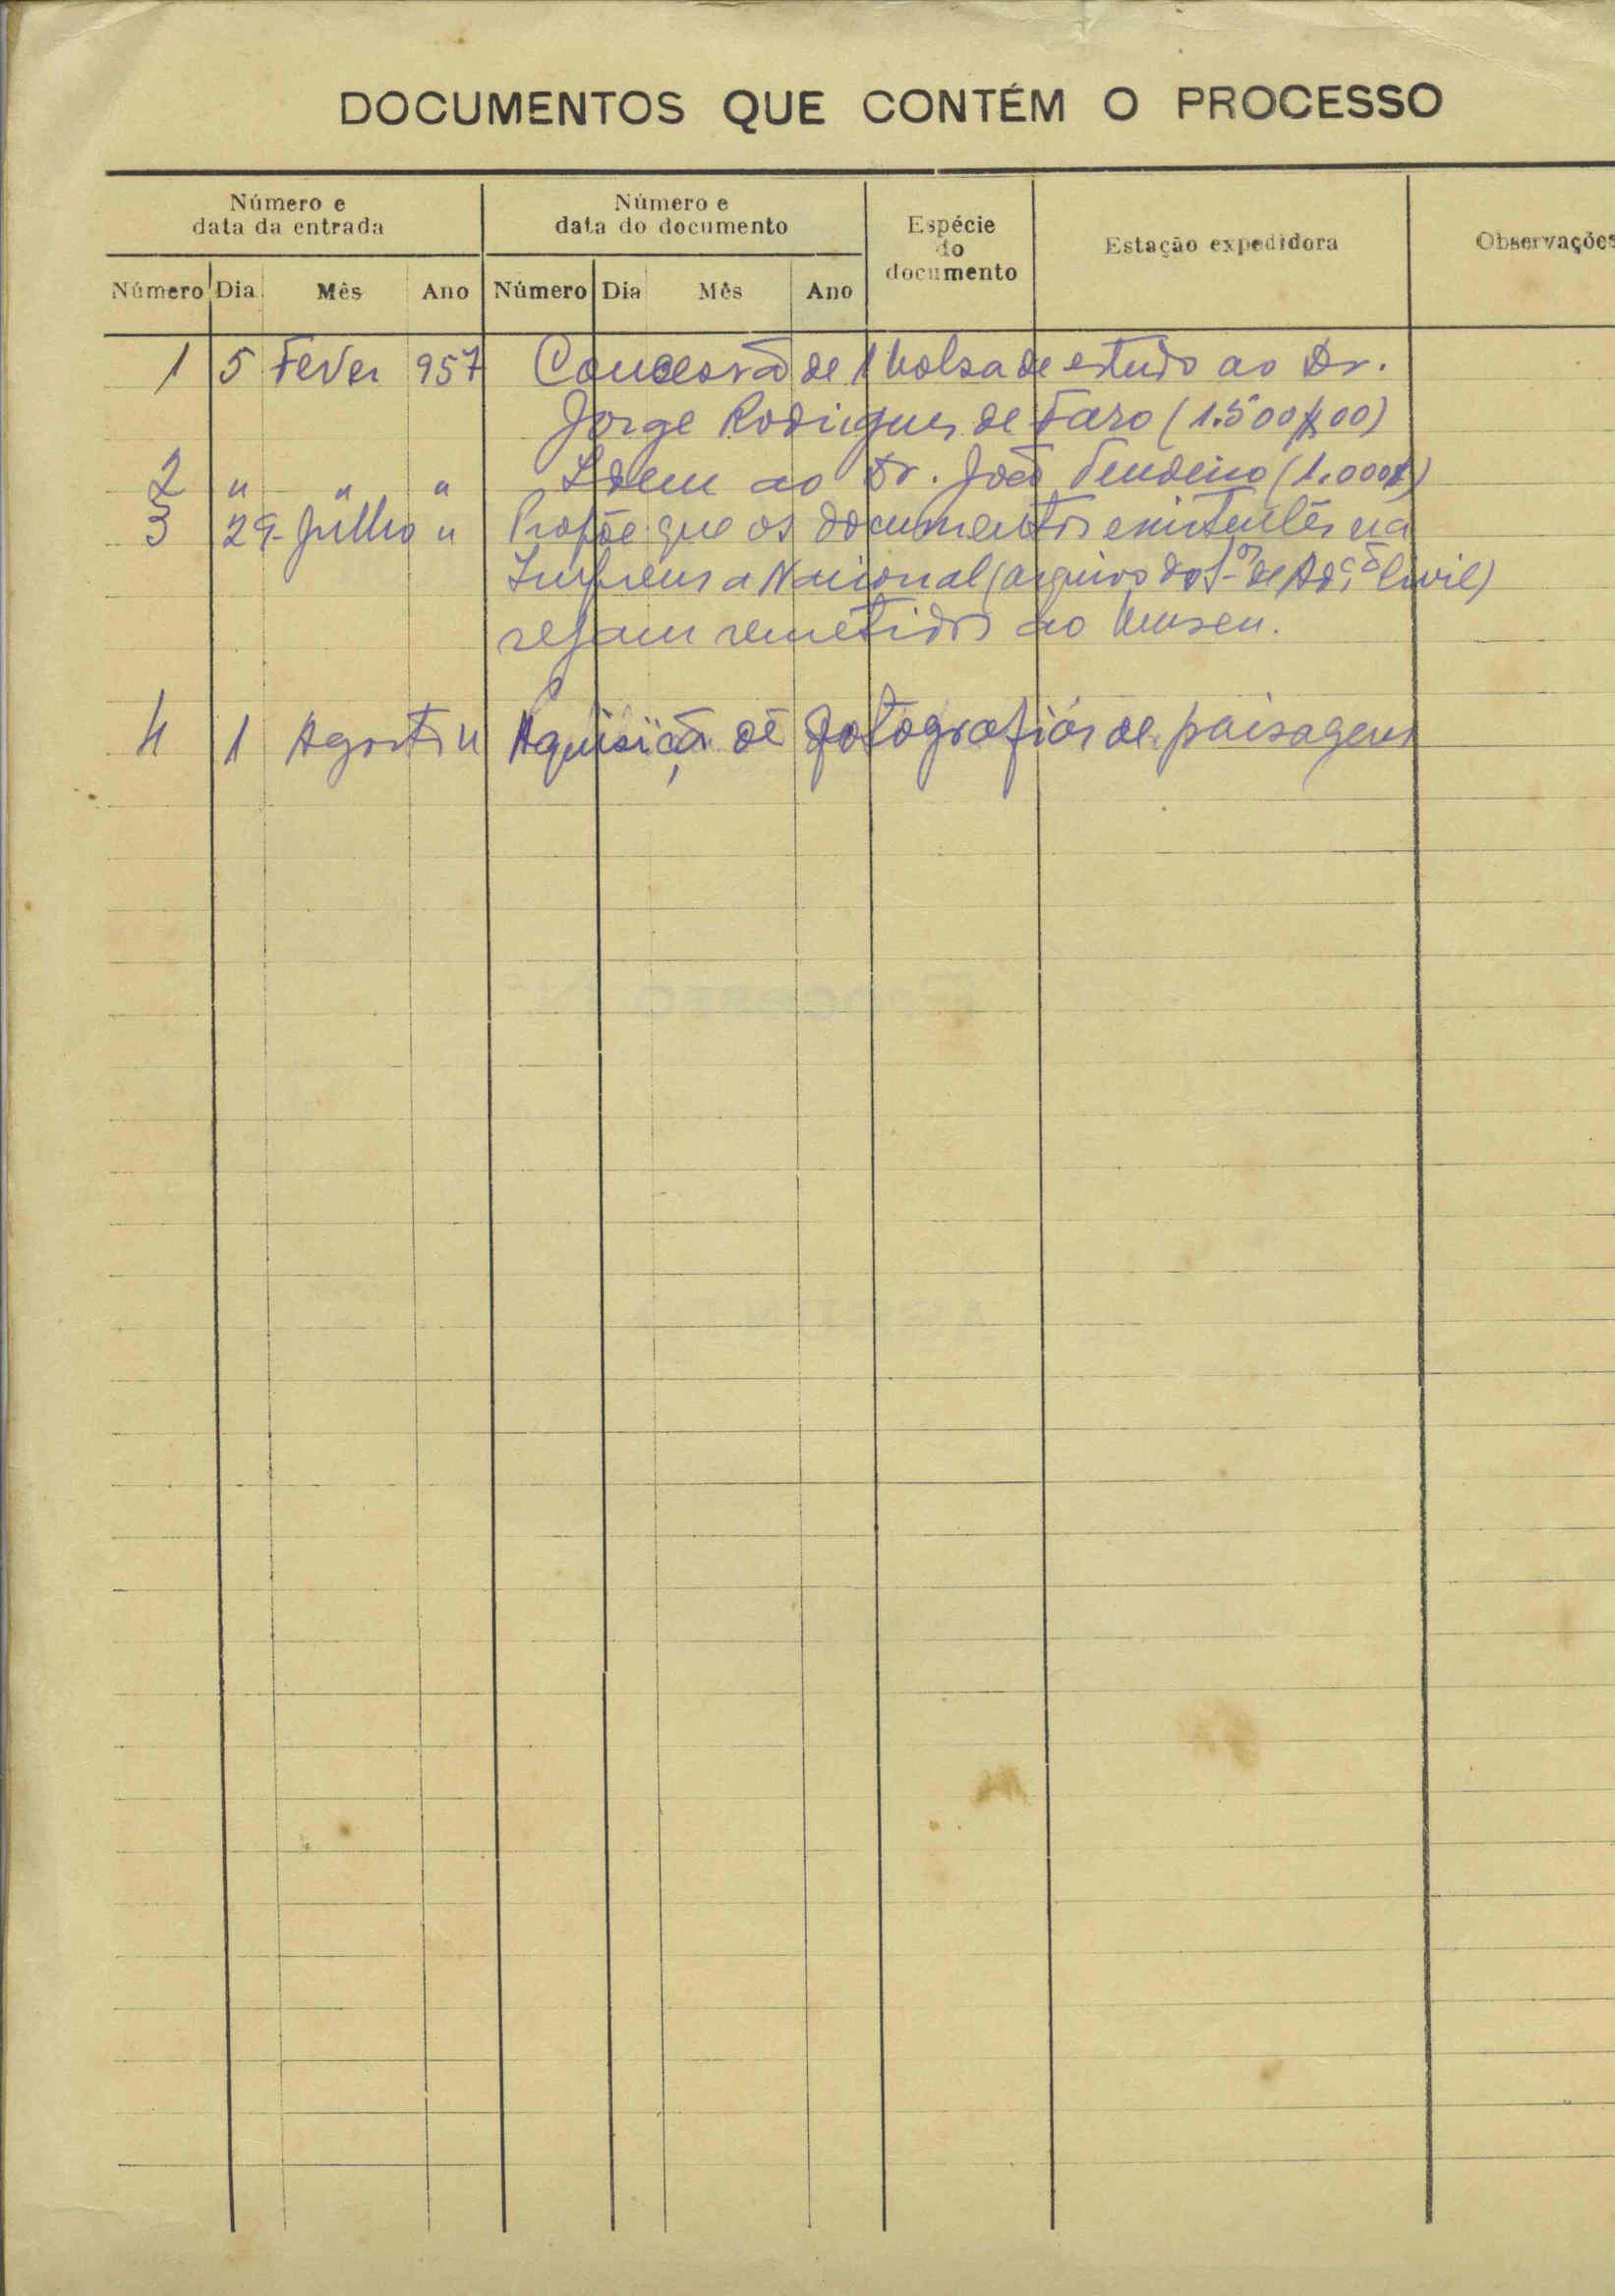 DOCUMENTOS QUE CONTÉM O PROCESSO
Número e data da entrada
Número e data do documento
Espécie do documento
Estação expedidora
Observações
Número Dia Mês Ano Número Dia Mês Ano
1 5 Fever 957 Concessão de 1 bolsa de estudo ao Dr.
Jorge Rodrigues de Faro (1.500$00)
2 " " " Idem ao Dr. João Tendeiro (1.000$)
3 29 Julho " Propõe que os documentos existentes na
Imprensa Nacional (arquivo dos de Adção Civil)
sejam remetidos ao Museu.
4 1 Agosto " Aquisição de fotografias de paisagens